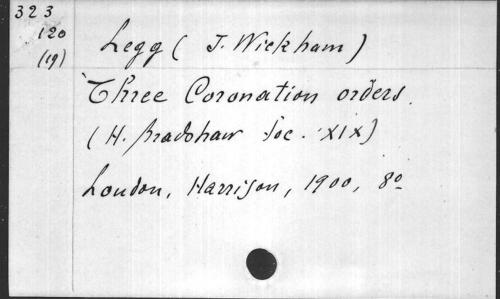 323
120
(19)
Legg (J. Wickham)
Three Coronation orders.
(H. Bradshaw Soc. XIX)
London, Harrison, 1900, 8º